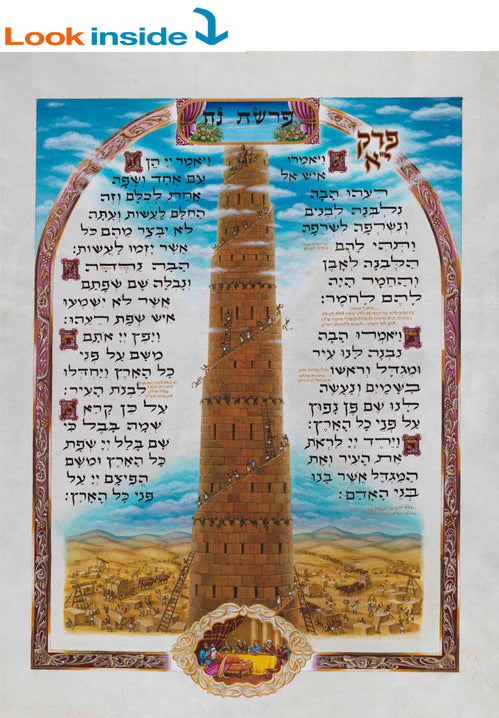 Look inside
פרשת נח
פרק
י״א
ויאמרו
איש אל
רעהו הבה
נלבנה לבנים
ונשרפה לשרפה
ותהי להם
הלבנה לאבן
והחמר היה
להם לחמר:
ויאמרו הבה
נבנה לנו עיר
ומגדל וראשו
בשמים ונעשה
לנו שם פן נפוץ
על פני כל הארץ:
וירד יי לראת
את העיר ואת
המגדל אשר בנו
בני האדם:
ויאמר יי הן
עם אחד ושפה
אחת לכלם וזה
החלם לעשות ועתה
לא יבצר מהם כל
אשר יזמו לעשות:
הבה נרדה
ונבלה שם שפתם
אשר לא ישמעו
איש שפת רעהו:
ויפץ יי אתם
משם על פני
כל הארץ ויחדלו
לבנת העיר:
על כן קרא
שמה בבל כי
שם בלל יי שפת
כל הארץ ומשם
הפיצם יי על
פני כל הארץ: